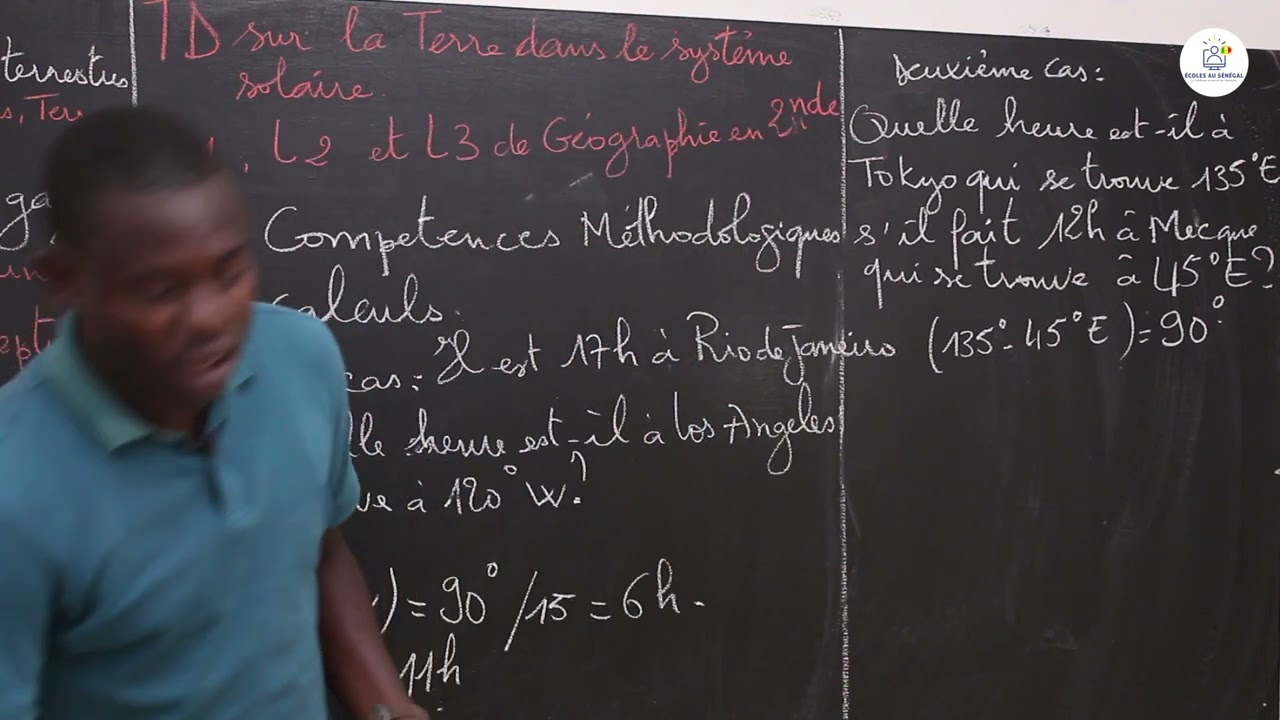 terrestres
TD sur la Terre dans le système
solaire.
, L2 et L3 de Géographie en 2nde
Compétences Méthodologiques
calculs.
cas: Il est 17h à Rio de Janeiro
lle heure est-il à Los Angeles
ve à 120° W?
) = 90° /15 = 6h.
11h
Deuxième cas:
Quelle heure est-il à
Tokyo qui se trouve 135°E
s'il fait 12h à Mecque
qui se trouve à 45°E?
(135°- 45°E) = 90°
ÉCOLES AU SÉNÉGAL